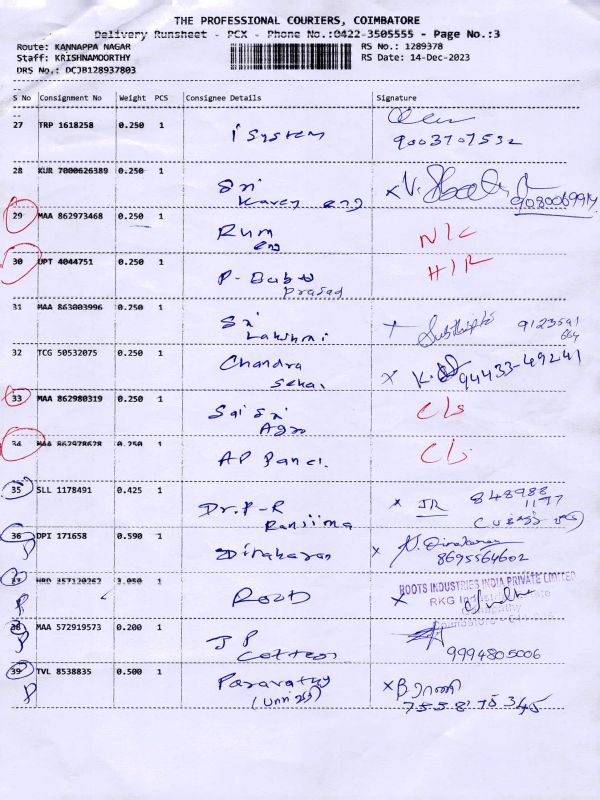 THE PROFESSIONAL COURIERS, COIMBATORE
Delivery Runsheet - PCX - Phone No.:0422-3505555 - Page No.:3
Route: KANNAPPA NAGAR RS No.: 1289378
Staff: KRISHNAMOORTHY RS Date: 14-Dec-2023
DRS No.: DCJB128937803
S No Consignment No Weight PCS Consignee Details Signature
27 TRP 1618258 0.250 1 i System
9003707532
28 KUR 7000626389 0.250 1 Sri
Karey eng
29 MAA 862973468 0.250 1 Rum N/C
eng
30 DPT 4044751 0.250 1 P-Babu
Prasad
31 MAA 863003996 0.250 1 Sri
Lakshmi
32 TCG 50532075 0.250 1 Chandra
Sekar 94433-49241
33 MAA 862980319 0.250 1 Sai Sri C/s
Agro
34 MAA 862978628 0.250 1 AP Panel. C/s
35 SLL 1178491 0.425 1 Dr.P-R x JR 848988
Ranjima 1177
36 DPI 171658 0.590 1 Dinakaran x N. Dinakaran
P 8695564602
37 HRD 357120262 3.050 1 Root x ROOTS INDUSTRIES INDIA PRIVATE LIMITED
P RKG Industrial Estate
38 MAA 572919573 0.200 1 J P
P Cotton 9994805006
39 TVL 8538835 0.500 1 Paravathy
P 7558175345